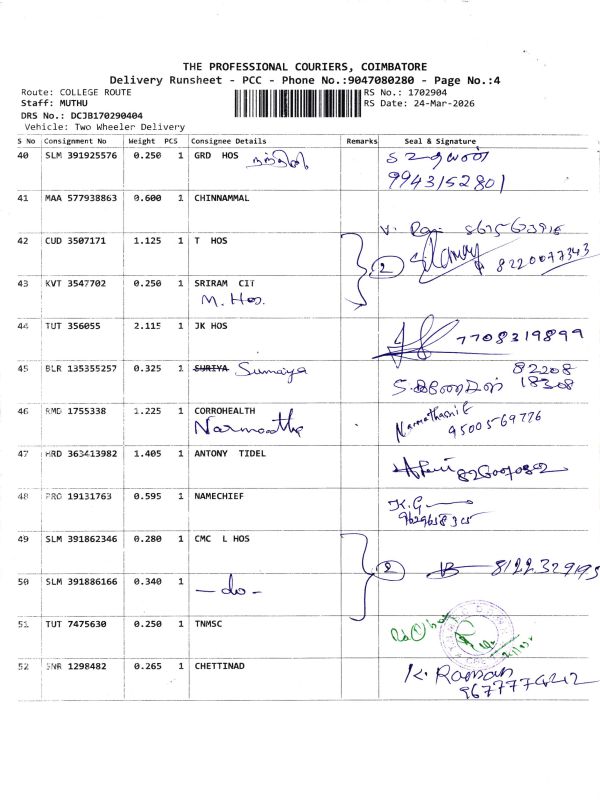 THE PROFESSIONAL COURIERS, COIMBATORE
Delivery Runsheet - PCC - Phone No.:9047080280 - Page No.:4
Route: COLLEGE ROUTE
RS No.: 1702904
Staff: MUTHU
RS Date: 24-Mar-2026
DRS No.: DCJB170290404
Vehicle: Two Wheeler Delivery
S No Consignment No Weight PCS Consignee Details Remarks Seal & Signature
40 SLM 391925576 0.250 1 GRD HOS
9943152801
41 MAA 577938863 0.600 1 CHINNAMMAL
42 CUD 3507171 1.125 1 T HOS 2 8220077343
43 KVT 3547702 0.250 1 SRIRAM CIT
M. Hos.
44 TUT 356055 2.115 1 JK HOS 7708319899
45 BLR 135355257 0.325 1 SURIYA Sumaiya 82208
18308
46 RMD 1755338 1.225 1 CORROHEALTH
Narmatha 9500569776
47 HRD 363413982 1.405 1 ANTONY TIDEL
48 PRO 19131763 0.595 1 NAMECHIEF K.G
49 SLM 391862346 0.280 1 CMC L HOS
2 8122329195
50 SLM 391886166 0.340 1 -do-
51 TUT 7475630 0.250 1 TNMSC
52 SNR 1298482 0.265 1 CHETTINAD K. Raman